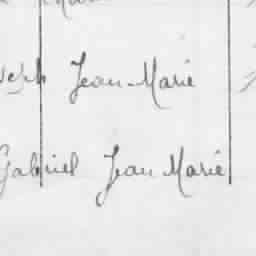 Jean Marie
Gabriel Jean Marie